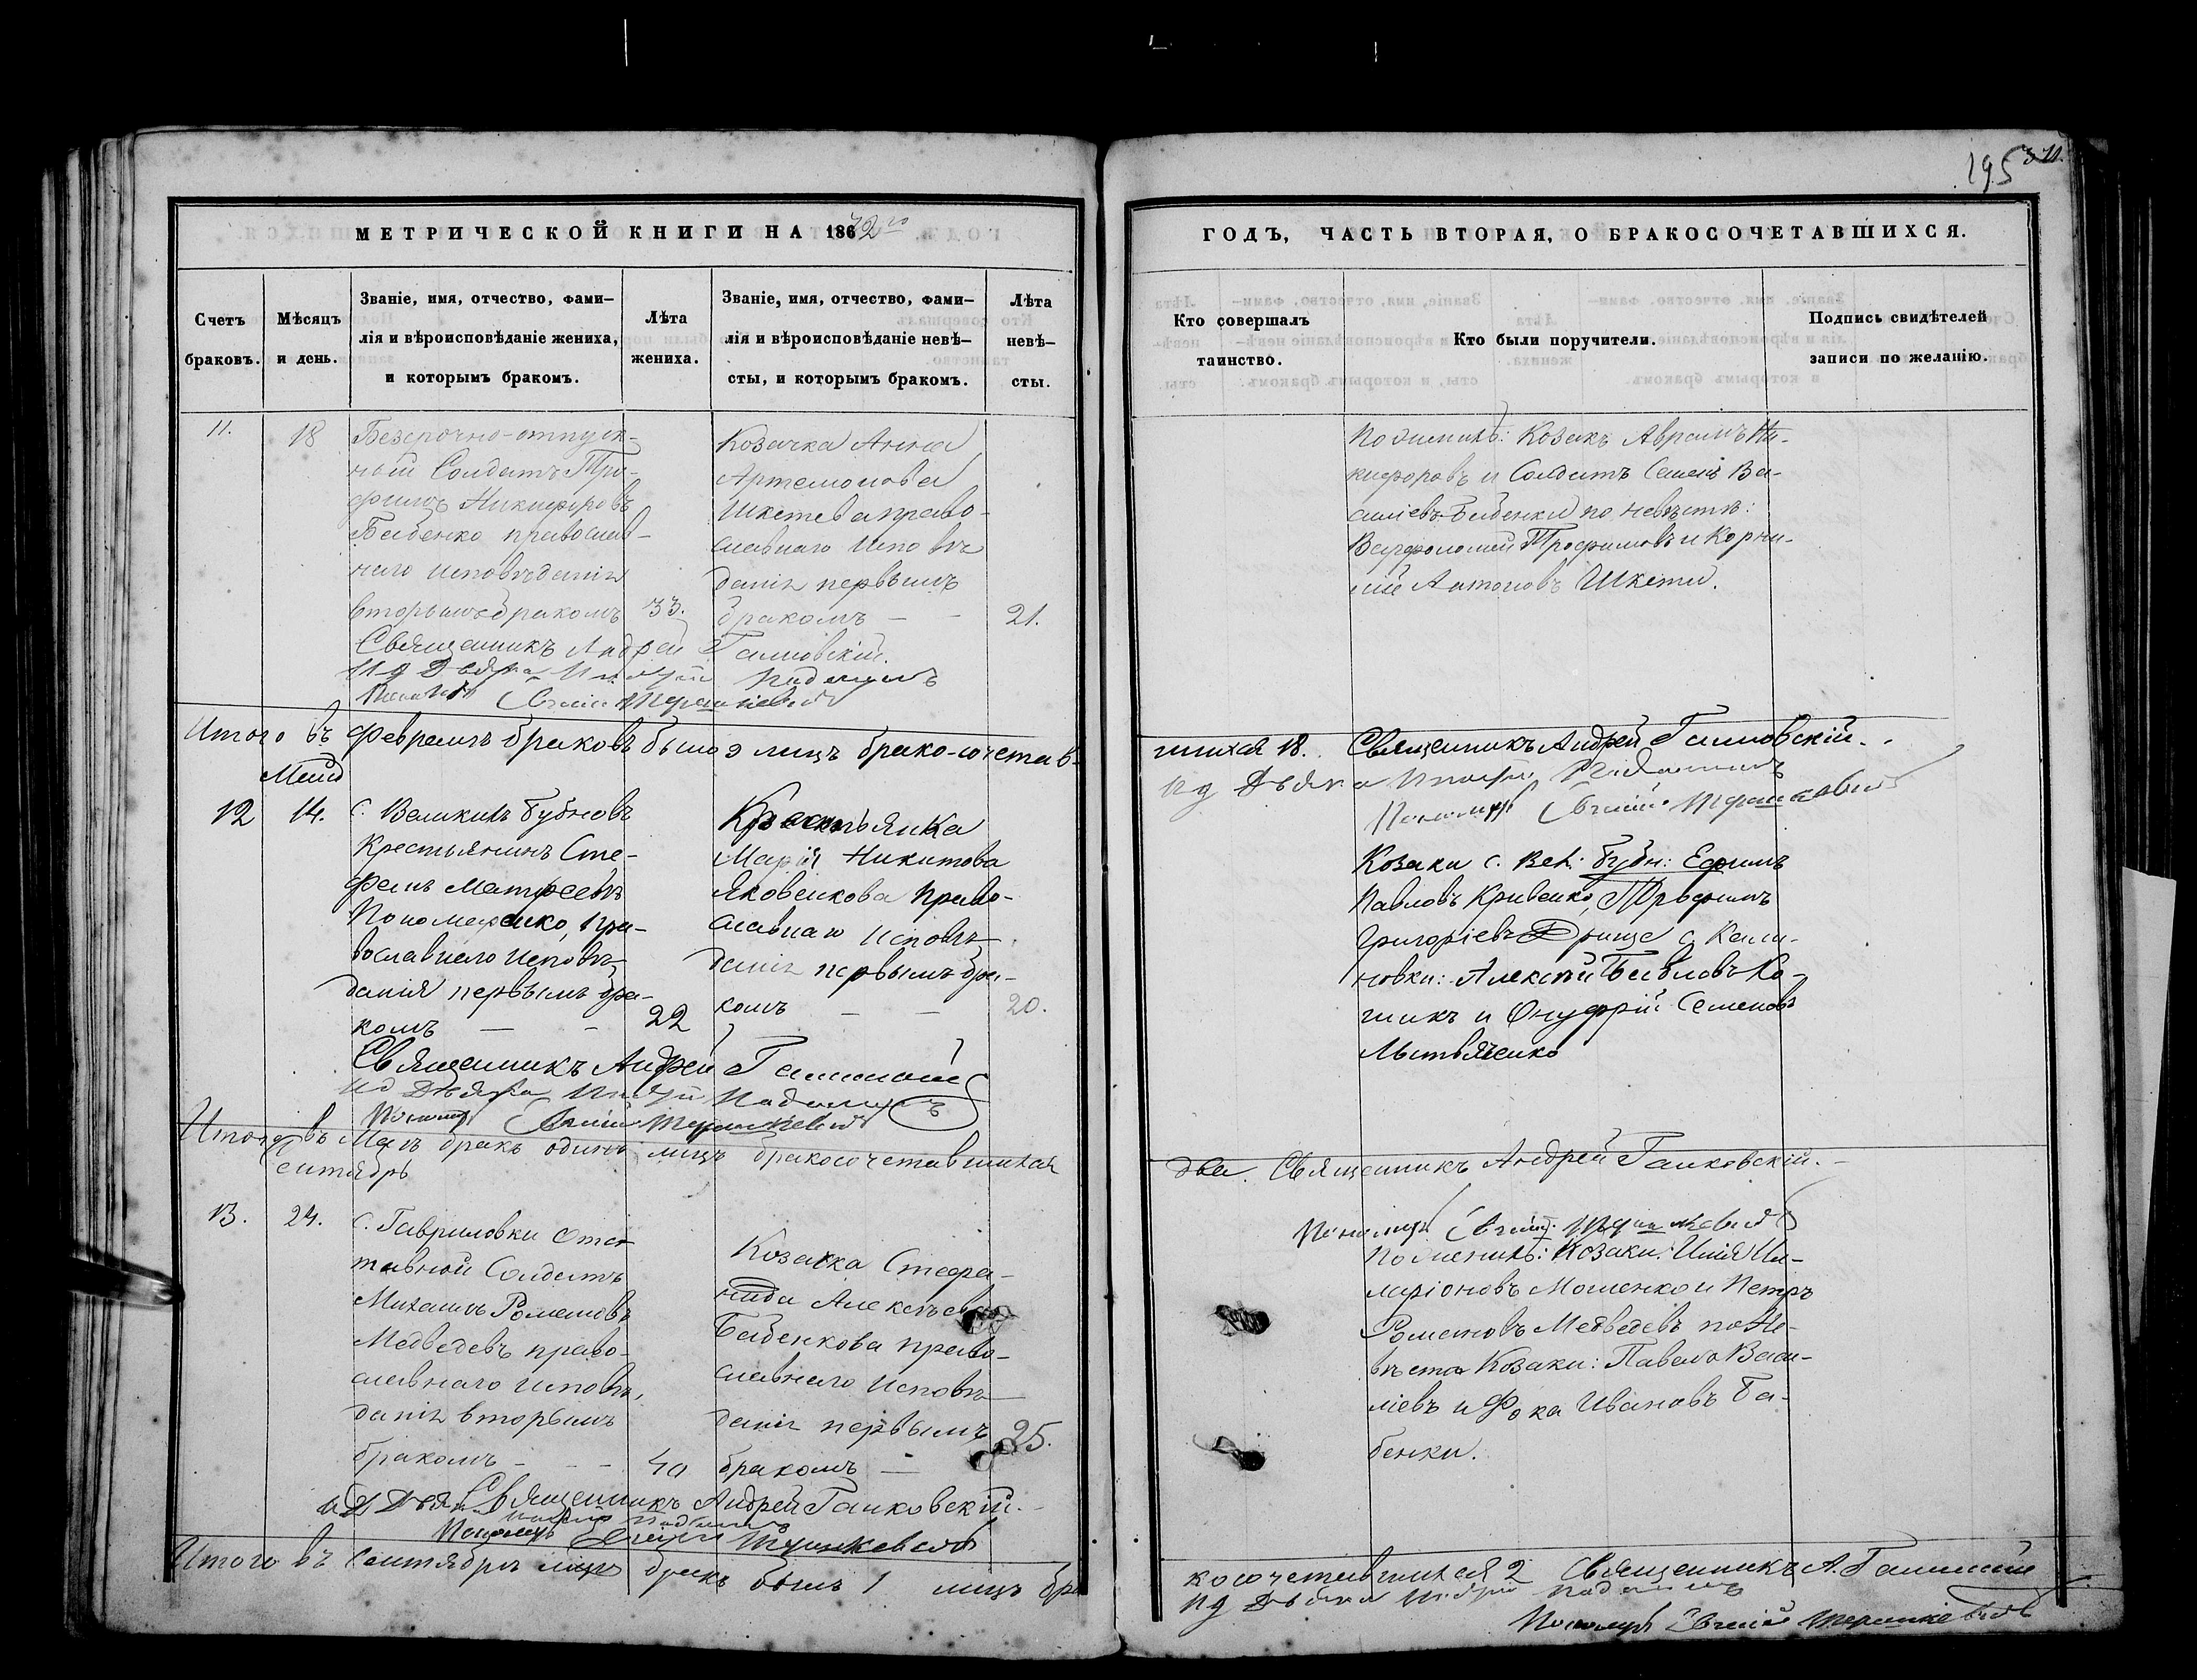 195
МЕТРИЧЕСКОЙ КНИГИ НА 1872го
ГОДЪ, ЧАСТЬ ВТОРАЯ, О БРАКОСОЧЕТАВШИХСЯ.
Счетъ
браковъ.
Мѣсяцъ
и день.
Званіе, имя, отчество, фами-
лія и вѣроисповѣданіе жениха,
и которымъ бракомъ.
Лѣта
жениха.
Званіе, имя, отчество, фами-
лія и вѣроисповѣданіе невѣ-
сты, и которымъ бракомъ.
Лѣта
невѣ-
сты.
Кто совершалъ
таинство.
Кто были поручители.
Подпись свидѣтелей
записи по желанію.
11.
18
Безсрочно-отпуск-
ный Солдатъ Тро-
фимъ Никифоровъ
Бабенко православ-
наго исповѣданія
вторымъ бракомъ
33.
Козачка Анна
Артемонова
Шкетева право-
славнаго исповѣ
данія первымъ
бракомъ — —
21.
По женихѣ: Козакъ Аврамъ Ни-
кифоровъ и Солдатъ Семенъ Ва-
силіевъ Бабенки по невѣстѣ:
Варфоломей Трофимовъ и Корни-
лій Антоновъ Шкети.
Священникъ Андрей
Итого въ Февралѣ браковъ было 9 лицъ брако-сочетав-
шихся 18. Священникъ Андрей
Маія
12
14.
с. Великихъ Бубновъ
Крестьянинъ Сте-
фанъ Матфеевъ
Пономаренко, пра-
вославнаго исповѣ
данія первымъ бра-
комъ — —
22
Крестьянка
Марія Никитова
Яковенкова право-
славнаго исповѣ-
данія первымъ бра-
комъ — —
20.
Козаки с. Вел: Бубн: Ефимъ
Павловъ Кривенко, Трофимъ
Григоріевъ
новки: Алексѣй
и Онуфрій Семеновъ
Священникъ Андрей
Итого въ Маѣ бракъ одинъ лицъ бракосочетавшихся
два. Священникъ Андрей Ганковскій.
Сентябрь
13.
24.
с. Гавриловки Отста
тавной Солдатъ
Михаилъ Романовъ
Медведевъ право-
славнаго исповѣ,
данія вторымъ
бракомъ - - —
40
Козачка Стефа-
нида Алексѣева
Бабенкова право-
славнаго исповѣ-
данія первымъ
бракомъ —
25.
По женихѣ: Козаки: Илія Ил-
ларіоновъ Мошенко и Петръ
Романовъ Медведевъ по не-
вѣстѣ Козаки: Павелъ Васи-
ліевъ и Фока Ивановъ Ба-
бенки.
Священникъ Андрей Ганковскій.
Итого въ Сентябрѣ бракъ былъ 1 лицъ бра
косочетавшихся 2 Священникъ А.